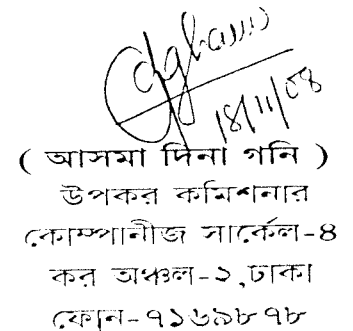 18/11/08
( আসমা দিনা গনি )
উপকর কমিশনার
কোম্পানীজ সার্কেল-৪
কর অঞ্চল-২,ঢাকা
ফোন-৭১৬৯৮৭৮